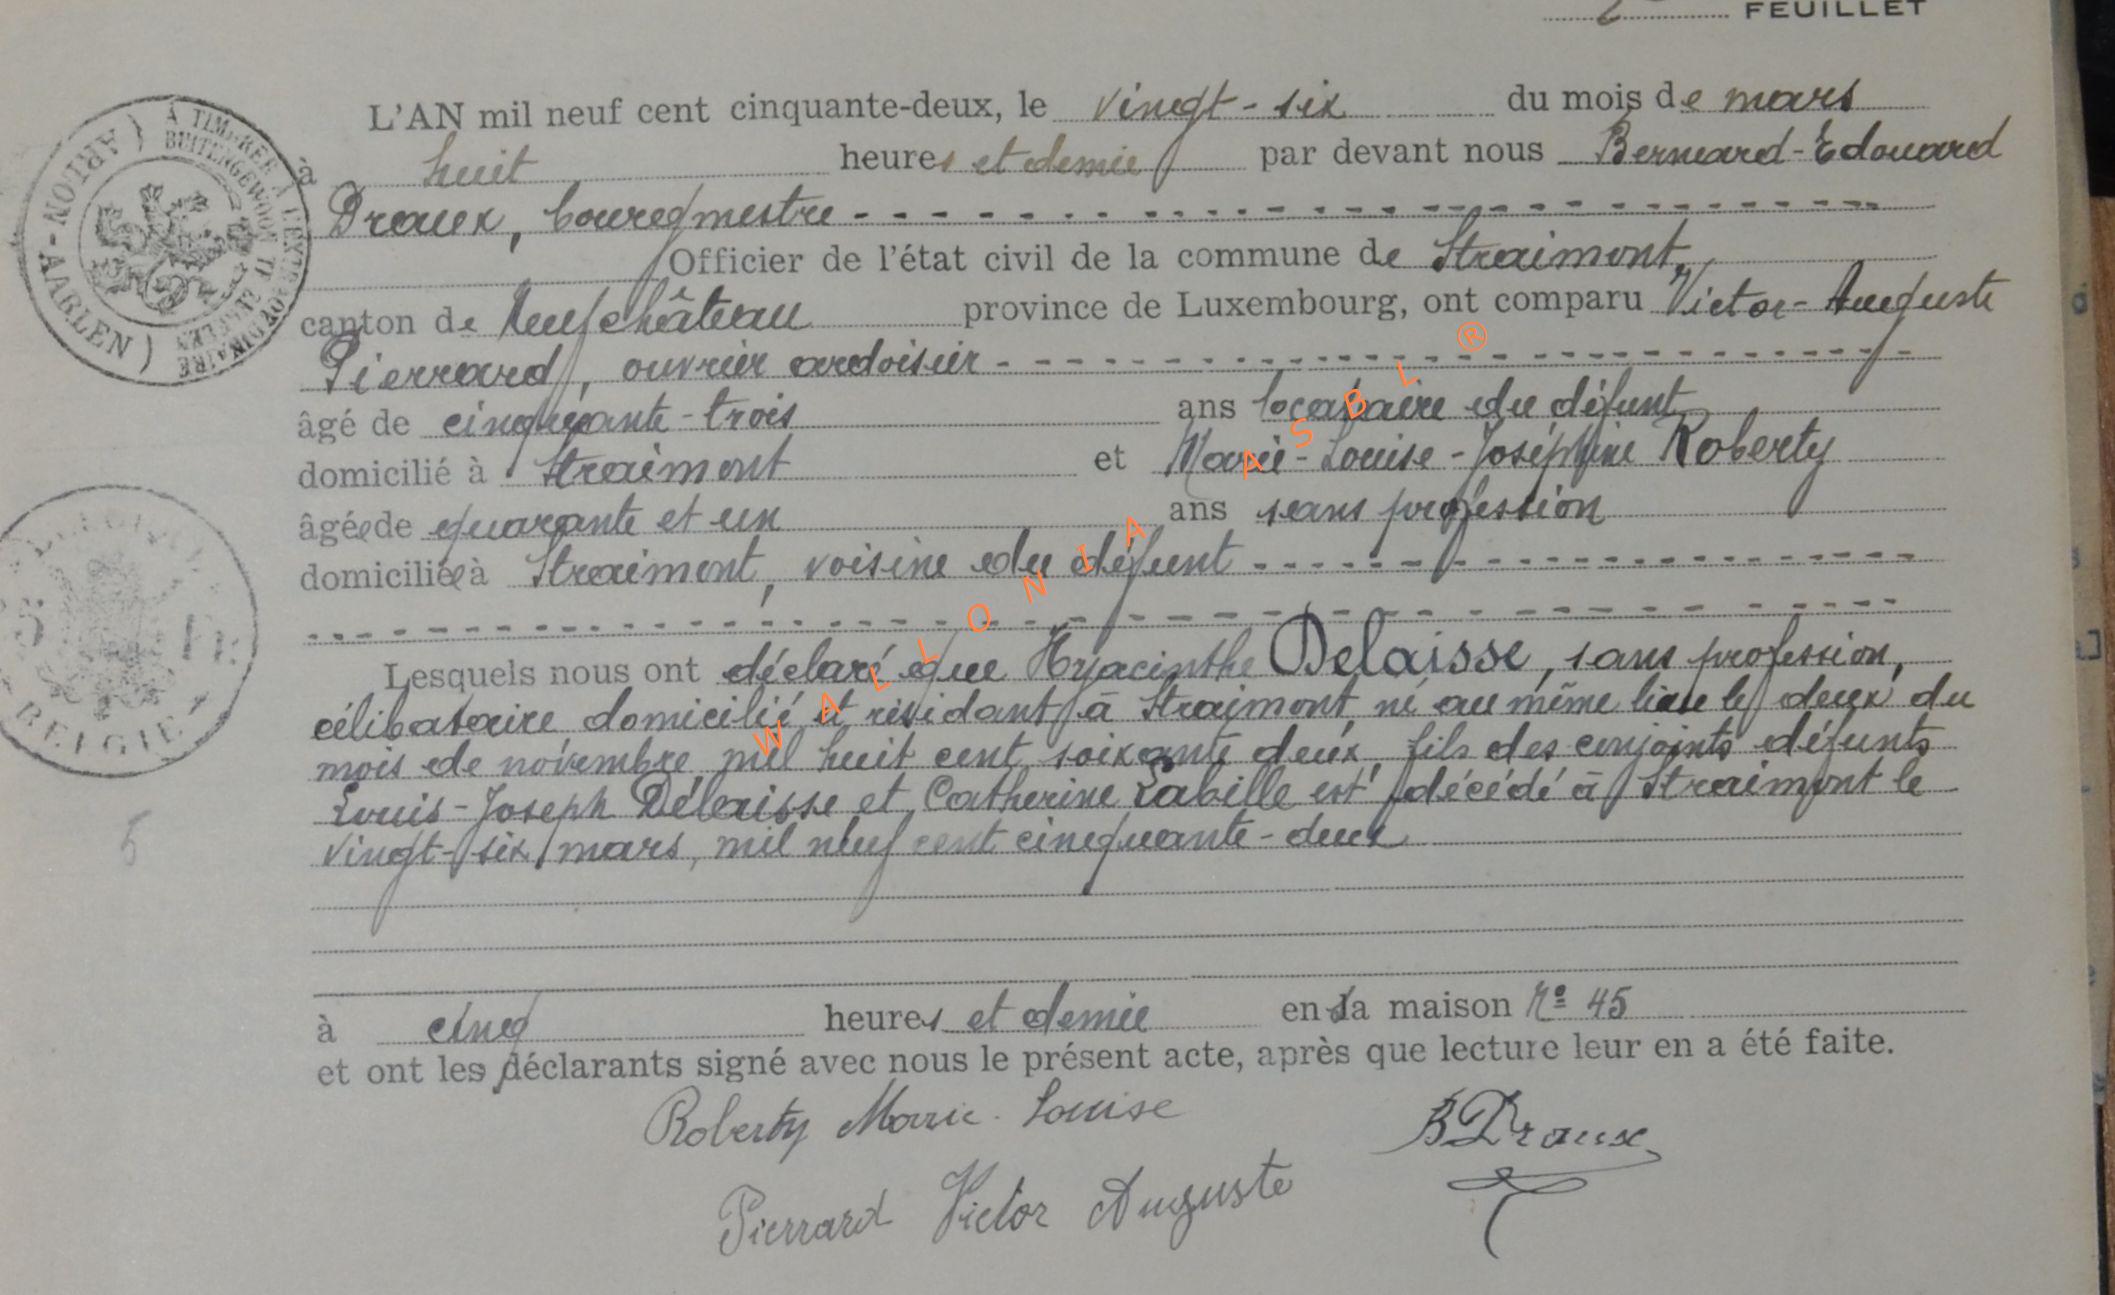 FEUILLET
L'AN mil neuf cent cinquante-deux, le vingt-six du mois de mars
à huit heures et demie par devant nous Bernard-Edouard
Draux, bourgmestre
Officier de l'état civil de la commune de Straimont,
canton de Neufchâteau province de Luxembourg, ont comparu Victor-Auguste
Pierrard, ouvrier ardoisier
âgé de cinquante-trois ans locataire du défunt
domicilié à Straimont et Marie-Louise-Joséphine Roberty
âgée de quarante et un ans sans profession
domiciliée à Straimont, voisine du défunt
Lesquels nous ont déclaré que Hyacinthe Delaisse, sans profession,
célibataire domicilié et résidant à Straimont, né au même lieu le deux du
mois de novembre mil huit cent soixante deux, fils des conjoints défunts
Louis-Joseph Delaisse et Catherine Labille est décédé à Straimont le
vingt-six mars, mil neuf cent cinquante-deux
à cinq heures et demie en sa maison Nº 45
et ont les déclarants signé avec nous le présent acte, après que lecture leur en a été faite.
Roberty Marie-Louise
B Draux
Pierrard Victor Auguste
(ARLON-AARLEN)
BELGIE
5
WALLONIA ASBL ®